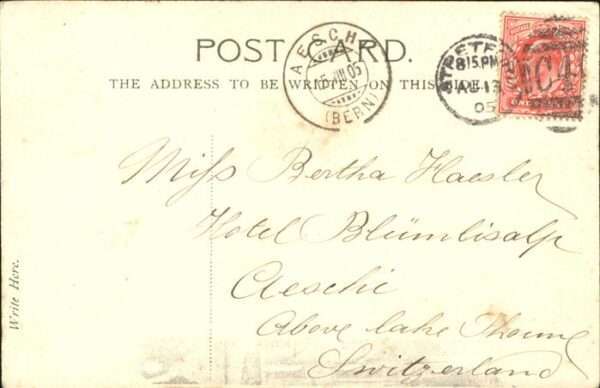 POST CARD.
THE ADDRESS TO BE WRITTEN ON THIS SIDE.
AESCHI
05
(BERN)
8 15 PM
AU 13
05
C4
Miss Bertha Haesler
Hotel Blümlisalp
Aeschi
Above lake Thoune
Switzerland
Write Here.